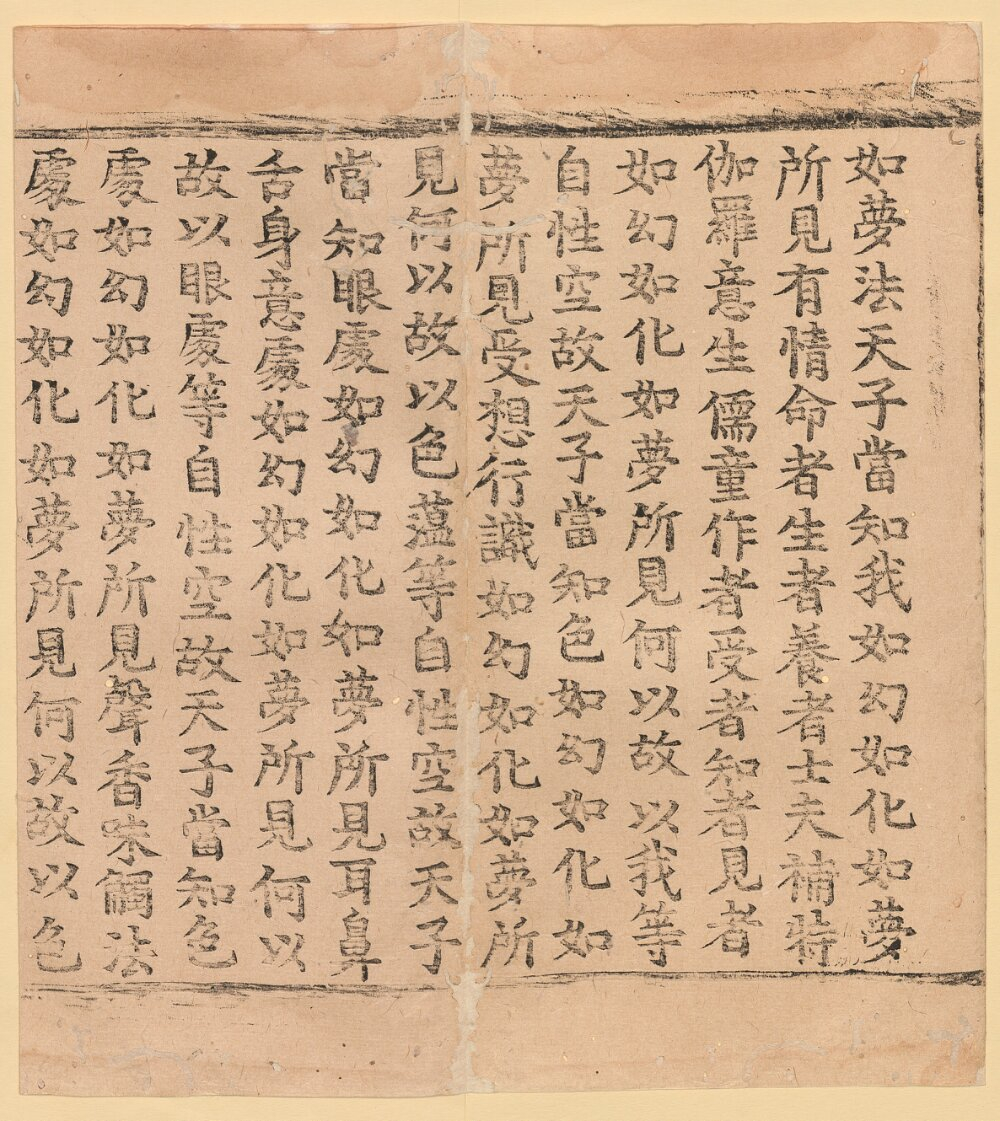 如夢法天子當知我如幻如化如夢
所見有情命者生者養者士夫補特
伽羅意生儒童作者受者知者見者
如幻如化如夢所見何以故以我等
自性空故天子當知色如幻如化如
夢所見受想行識如幻如化如夢所
見何以故以色薀等自性空故天子
當知眼𠁅如幻如化如夢所見耳鼻
舌身意𠁅如幻如化如夢所見何以
故以眼𠁅等自性空故天子當知色
𠁅如幻如化如夢所見聲香味觸法
𠁅如幻如化如夢所見何以故以色